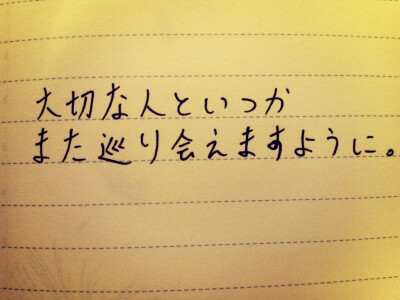 大切な人といつか
また巡り会えますように。